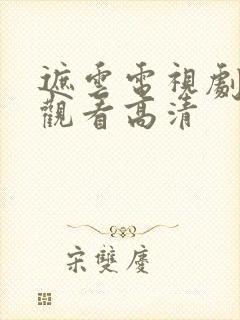 遮雲電視劇
觀看高清
宋雙慶